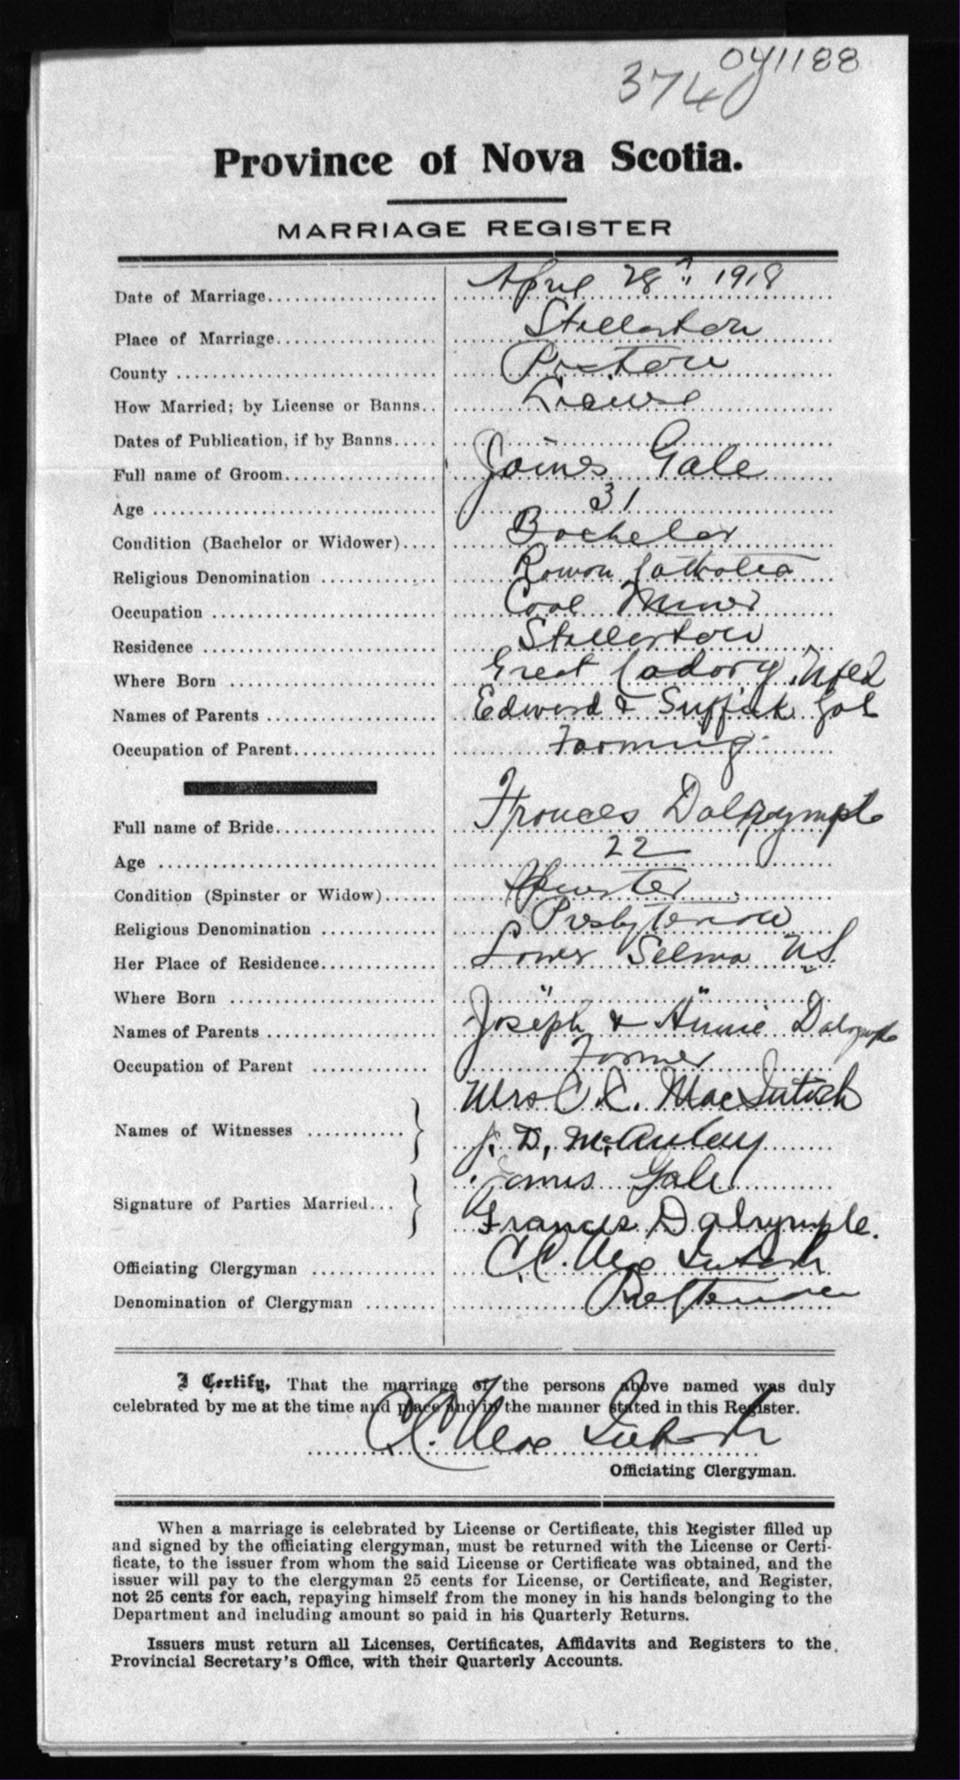 041188
374
Province of Nova Scotia.
MARRIAGE REGISTER
Date of Marriage.................. April 28th 1918
Place of Marriage................. Stellarton
County ........................... Pictou
How Married; by License or Banns.. License
Dates of Publication, if by Banns.....
Full name of Groom................ James Gale
Age .............................. 31
Condition (Bachelor or Widower).... Bachelor
Religious Denomination ............ Roman Catholic
Occupation ....................... Coal Miner
Residence ........................ Stellarton
Where Born ....................... Great Codroy, Nfld
Names of Parents ................. Edward &
Occupation of Parent.............. Farming
Full name of Bride................ Frances Dalrymple
Age .............................. 22
Condition (Spinster or Widow)...... Spinster
Religious Denomination ............ Presbyterian
Her Place of Residence............ Lower Selma N.S.
Where Born ....................... " "
Names of Parents ................. Joseph & Annie Dalrymple
Occupation of Parent ............. Farmer
Mrs C. C. MacIntosh
Names of Witnesses ...........
J. D. McAulay
James Gale
Signature of Parties Married...
Frances Dalrymple.
Officiating Clergyman ............. C. C. MacIntosh
Denomination of Clergyman ........ Presbyterian
I Certify, That the marriage of the persons above named was duly
celebrated by me at the time and place and in the manner stated in this Register.
C. C. MacIntosh
Officiating Clergyman.
When a marriage is celebrated by License or Certificate, this Register filled up
and signed by the officiating clergyman, must be returned with the License or Certi-
ficate, to the issuer from whom the said License or Certificate was obtained, and the
issuer will pay to the clergyman 25 cents for License, or Certificate, and Register,
not 25 cents for each, repaying himself from the money in his hands belonging to the
Department and including amount so paid in his Quarterly Returns.
Issuers must return all Licenses, Certificates, Affidavits and Registers to the
Provincial Secretary's Office, with their Quarterly Accounts.